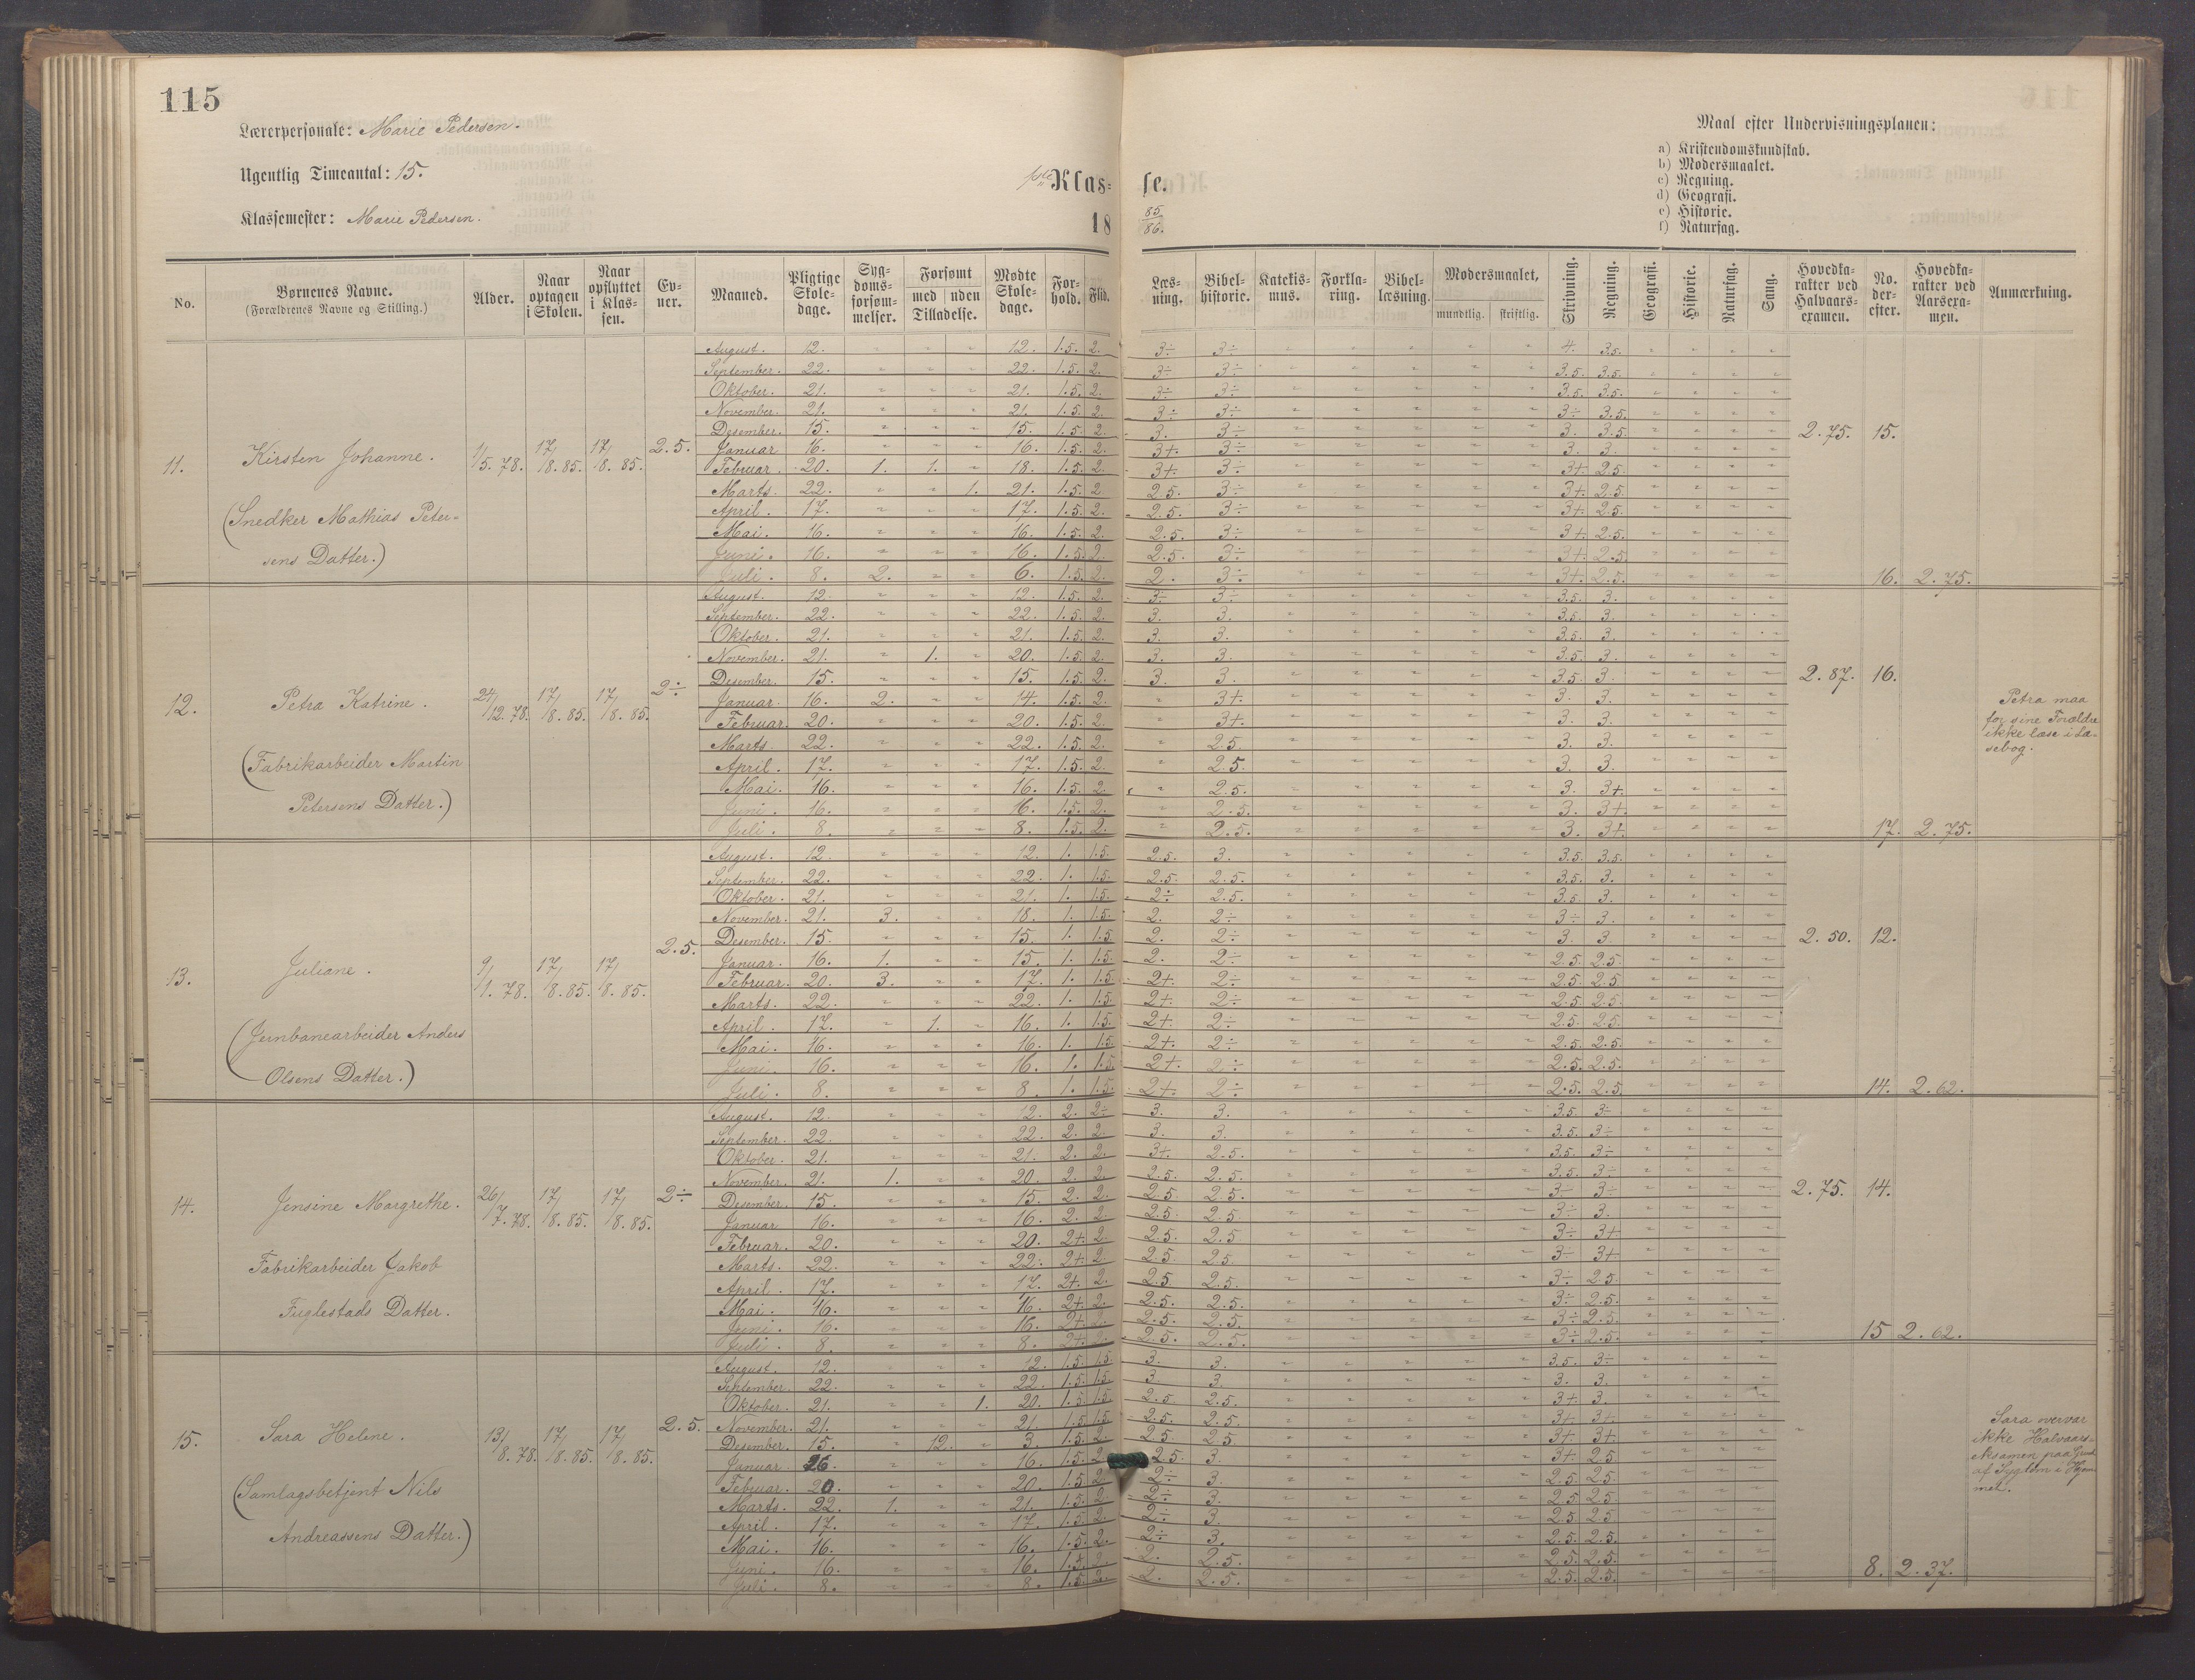 115
Lærerpersonale: Marie Pedersen.
Ugentlig Timeantal: 15.
Klassemester: Marie Pedersen.
1ste Klas= se.
18 85/86.
Maal efter Undervisningsplanen:
a) Kristendomskundskab.
b) Modersmaalet.
c) Regning.
d) Geografi.
e) Historie.
f) Naturfag.
No. Børnenes Navne. (Forældrenes Navne og Stilling.) Alder. Naar optagen i Skolen. Naar opflyttet i Klassen. Evner. Maaned. Pligtige Skoledage. Sygdomsforsømmelser. Forsømt med uden Tilladelse. Mødte Skoledage. Forhold. Flid. Læsning. Bibelhistorie. Katekismus. Forklaring. Bibellæsning. Modersmaalet, mundtlig. skriftlig. Skrivning. Regning. Geografi. Historie. Naturfag. Sang. Hovedkarakter ved Halvaarsexamen. No. derefter. Hovedkarakter ved Aarsexamen. Anmærkning.
11. Kirsten Johanne. 1/5. 78. 17/8. 85. 17/8. 85. 2.5.
(Snedker Mathias Peter-
sens Datter.)
August. 12. " " " 12. 1.5. 2. 3÷ 3÷ 4. 3.5.
September. 22. " " " 22. 1.5. 2. 3÷ 3÷ 3.5. 3.5.
Oktober. 21. " " " 21. 1.5. 2. 3÷ 3÷ 3.5. 3.5.
November. 21. " " " 21. 1.5. 2. 3÷ 3÷ 3÷ 3.5.
Desember. 15. " " " 15. 1.5. 2. 3. 3÷ 3. 3.5. 2.75. 15.
Januar 16. " " " 16. 1.5. 2. 3+. 3÷ 3. 3.
Februar. 20. 1. 1. " 18. 1.5. 2. 3+. 3÷ 3+. 2.5.
Marts. 22. " " 1. 21. 1.5. 2. 2.5. 3÷ 3+. 2.5.
April. 17. " " " 17. 1.5. 2. 2.5. 3÷ 3+. 2.5.
Mai. 16. " " " 16. 1.5. 2. 2.5. 3÷ 3+. 2.5.
Juni. 16. " " " 16. 1.5. 2. 2.5. 3÷ 3+. 2.5.
Juli. 8. 2. " " 6. 1.5. 2. 2. 3÷ 3+. 2.5. 16. 2.75.
12. Petra Katrine. 24/12. 78. 17/8. 85. 17/8. 85. 2÷
(Fabrikarbeider Martin
Petersens Datter.)
August. 12. " " " 12. 1.5. 2. 3÷ 3÷ 3.5. 3.
September. 22. " " " 22. 1.5. 2. 3. 3. 3.5. 3.
Oktober. 21. " " " 21. 1.5. 2. 3. 3. 3.5. 3.
November. 21. " 1. " 20. 1.5. 2. 3. 3. 3.5. 3.
Desember. 15. " " " 15. 1.5. 2. 3. 3. 3.5. 3. 2.87. 16.
Januar. 16. 2. " " 14. 1.5. 2. " 3+. 3. 3.
Februar. 20. " " " 20. 1.5. 2. " 3+. 3. 3.
Marts. 22. " " " 22. 1.5. 2. " 2.5. 3. 3.
April. 17. " " " 17. 1.5. 2. " 2.5. 3. 3.
Mai. 16. " " " 16. 1.5. 2. " 2.5. 3. 3+.
Juni. 16. " " " 16. 1.5. 2. " 2.5. 3. 3+.
Juli. 8. " " " 8. 1.5. 2. " 2.5. 3. 3+. 17. 2.75.
Petra maa
for sine Forældre
ikke læse i Læ-
sebog.
13. Juliane. 9/1. 78. 17/8. 85. 17/8. 85. 2.5.
(Jernbanearbeider Anders
Olsens Datter.)
August. 12. " " " 12. 1. 1.5. 2.5. 3. 3.5. 3.5.
September. 22. " " " 22. 1. 1.5. 2.5. 2.5. 3.5. 3.
Oktober. 21. " " " 21. 1. 1.5. 2÷ 2.5. 3.5. 3.
November. 21. 3. " " 18. 1. 1.5. 2. 2÷ 3÷ 3.
Desember. 15. " " " 15. 1. 1.5. 2. 2÷ 3. 3. 2.50. 12.
Januar. 16. 1. " " 15. 1. 1.5. 2. 2÷ 2.5. 2.5.
Februar. 20. 3. " " 17. 1. 1.5. 2+. 2÷ 2.5. 2.5.
Marts. 22. " " " 22. 1. 1.5. 2+. 2÷ 2.5. 2.5.
April. 17. " 1. " 16. 1. 1.5. 2+. 2÷ 2.5. 2.5.
Mai. 16. " " " 16. 1. 1.5. 2+. 2÷ 2.5. 2.5.
Juni. 16. " " " 16. 1. 1.5. 2+. 2÷ 2.5. 2.5.
Juli. 8. " " " 8. 1. 1.5. 2+. 2÷ 2.5. 2.5. 14. 2.62.
14. Jensine Margrethe. 26/7. 78. 17/8. 85. 17/8. 85. 2÷
Fabrikarbeider Jakob
Fuglestads Datter.
August. 12. " " " 12. 2. 2÷ 3. 3. 3.5. 3÷
September. 22. " " " 22. 2. 2. 3. 3. 3.5. 3÷
Oktober. 21. " " " 21. 2. 2. 3+. 2.5. 3.5. 3÷
November. 21. 1. " " 20. 2. 2. 2.5. 2.5. 3.5. 3÷
Desember. 15. " " " 15. 2. 2. 2.5. 2.5. 3÷ 3÷ 2.75. 14.
Januar 16. " " " 16. 2. 2. 2.5. 2.5. 3÷ 3.
Februar. 20. " " " 20. 2+. 2. 2.5. 2.5 3÷ 3+.
Marts. 22. " " " 22. 2+. 2. 2.5 2.5. 3÷ 3+
April. 17. " " " 17. 2+. 2. 2.5 2.5. 3÷ 2.5.
Mai. 16. " " " 16. 2+. 2. 2.5. 2.5. 3÷ 2.5.
Juni. 16. " " " 16. 2+. 2. 2.5. 2.5. 3÷ 2.5.
Juli. 8. " " " 8. 2+. 2. 2.5. 2.5. 3÷ 2.5. 15 2.62.
15. Sara Helene. 13/8. 78. 17/8. 85. 17/8. 85. 2.5.
(Samlagsbetjent Nils
Andreassens Datter.)
August. 12. " " " 12. 1.5. 1.5. 3. 3. 3.5. 3÷
September. 22. " " " 22. 1.5. 1.5. 3 3. 3. 3.
Oktober. 21. " " 1. 20. 1.5. 1.5. 2.5 2.5. 3+. 3.
November. 21. " " " 21. 1.5. 1.5. 2.5. 2.5. 3+. 3+.
Desember. 15. " 12. " 3. 1.5. 2. 2.5 2.5. 3+. 3+.
Januar. 16. " " " 16. 1.5. 2. 2.5. 3. 3+. 2.5.
Februar. 20. " " " 20. 1.5. 2. 2÷ 3. 2.5 2.5.
Marts. 22. 1. " " 21. 1.5. 2. 2÷ 3. 2.5 2.5.
April. 17. " " " 17. 1.5. 2. 2÷ 3. 2.5 2.5.
Mai. 16. " " " 16. 1.5. 2. 2÷ 3. 2.5. 2.5.
Juni. 16. " " " 16. 1.5. 2. 2. 2.5. 2.5. 2.5.
Juli. 8. " " " 8. 1.5. 2. 2. 2.5. 2.5. 2.5. 8. 2.37.
Sara overvar
ikke Halvaars-
eksamen paa Grund
af Sygdom i Hjem-
met.